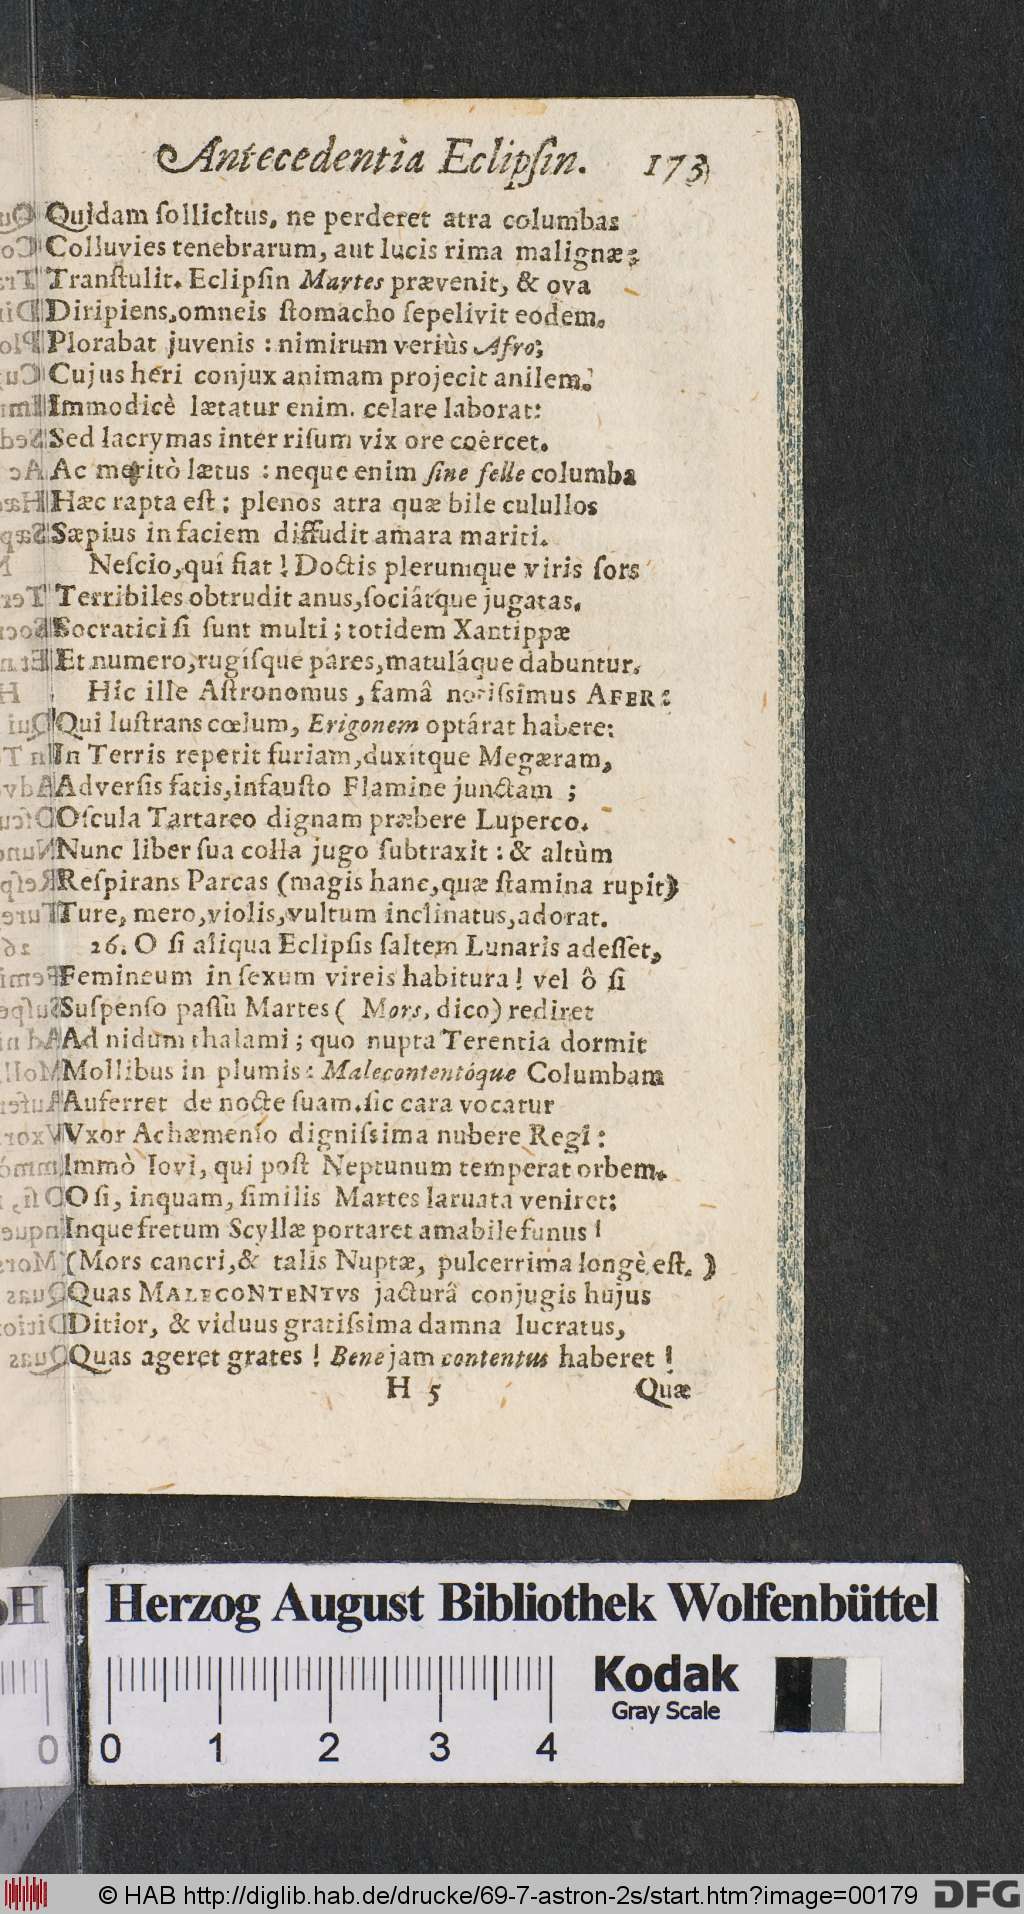 Antecedentia Eclipſin. 173
Quidam ſollicitus, ne perderet atra columbas
Colluvies tenebrarum, aut lucis rima malignæ;
Tranſtulit. Eclipſin Martes prævenit, & ova
Diripiens, omneis ſtomacho ſepelivit eodem.
Plorabat juvenis : nimirum veriùs Afro;
Cujus heri conjux animam projecit anilem.
Immodicè lætatur enim. celare laborat:
Sed lacrymas inter riſum vix ore coërcet.
Ac meritò lætus : neque enim ſine felle columba
Hæc rapta eſt : plenos atra quæ bile culullos
Sæpius in faciem diffudit amara mariti.
Neſcio, qui fiat ! Doctis plerumque viris ſors
Terribiles obtrudit anus, ſociátque jugatas.
Socratici ſi ſunt multi ; totidem Xantippæ
Et numero, rugíſque pares, matuláque dabuntur.
Hic ille Aſtronomus , famâ notiſſimus AFER :
Qui luſtrans cœlum, Erigonem optárat habere:
In Terris reperit furiam, duxitque Megæram,
Adverſis fatis, infauſto Flamine junctam ;
Oſcula Tartareo dignam præbere Luperco.
Nunc liber ſua colla jugo ſubtraxit : & altùm
Reſpirans Parcas (magis hanc, quæ ſtamina rupit)
Ture, mero, violis, vultum inclinatus, adorat.
26. O ſi aliqua Eclipſis ſaltem Lunaris adeſſet,
Femineum in ſexum vireis habitura ! vel ô ſi
Suſpenſo paſſu Martes ( Mors, dico) rediret
Ad nidum thalami ; quo nupta Terentia dormit
Mollibus in plumis : Malecontentóque Columbam
Auferret de nocte ſuam. ſic cara vocatur
Vxor Achæmenio digniſsima nubere Regi :
Immò Iovi, qui poſt Neptunum temperat orbem.
O ſi, inquam, ſimilis Martes laruata veniret:
Inque fretum Scyllæ portaret amabile funus !
(Mors cancri, & talis Nuptæ, pulcerrima longè eſt. )
Quas MALECONTENTVS jacturâ conjugis hujus
Ditior, & viduus gratiſsima damna lucratus,
Quas ageret grates ! Bene jam contentus haberet !
H 5 Quæ
Herzog August Bibliothek Wolfenbüttel
Kodak
Gray Scale
0 0 1 2 3 4
© HAB http://diglib.hab.de/drucke/69-7-astron-2s/start.htm?image=00179 DFG